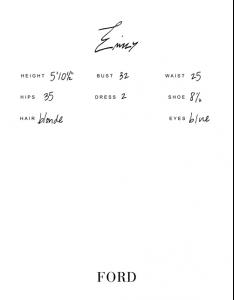 HEIGHT 5'10½" BUST 32 WAIST 25
HIPS 35 DRESS 2 SHOE 8½
HAIR blonde EYES blue
FORD